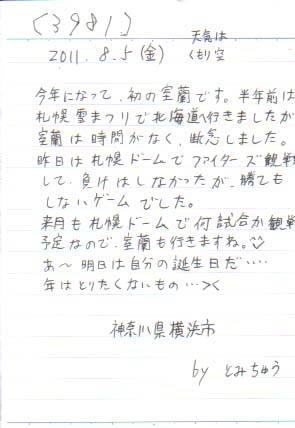 (3981)
2011. 8.5(金) 天気は、
くもり空
今年になって、初の室蘭です。半年前は
札幌雪まつりで北海道へ行きましたが
室蘭は時間がなく、断念しました。
昨日は札幌ドームでファイターズ観戦
して、負けはしなかったが、勝ても
しないゲームでした。
来月も札幌ドームで何試合か観戦
予定なので、室蘭も行きますね。
あ〜明日は自分の誕生日だ‥‥
年はとりたくないもの…><
神奈川県横浜市
by とみちゅう